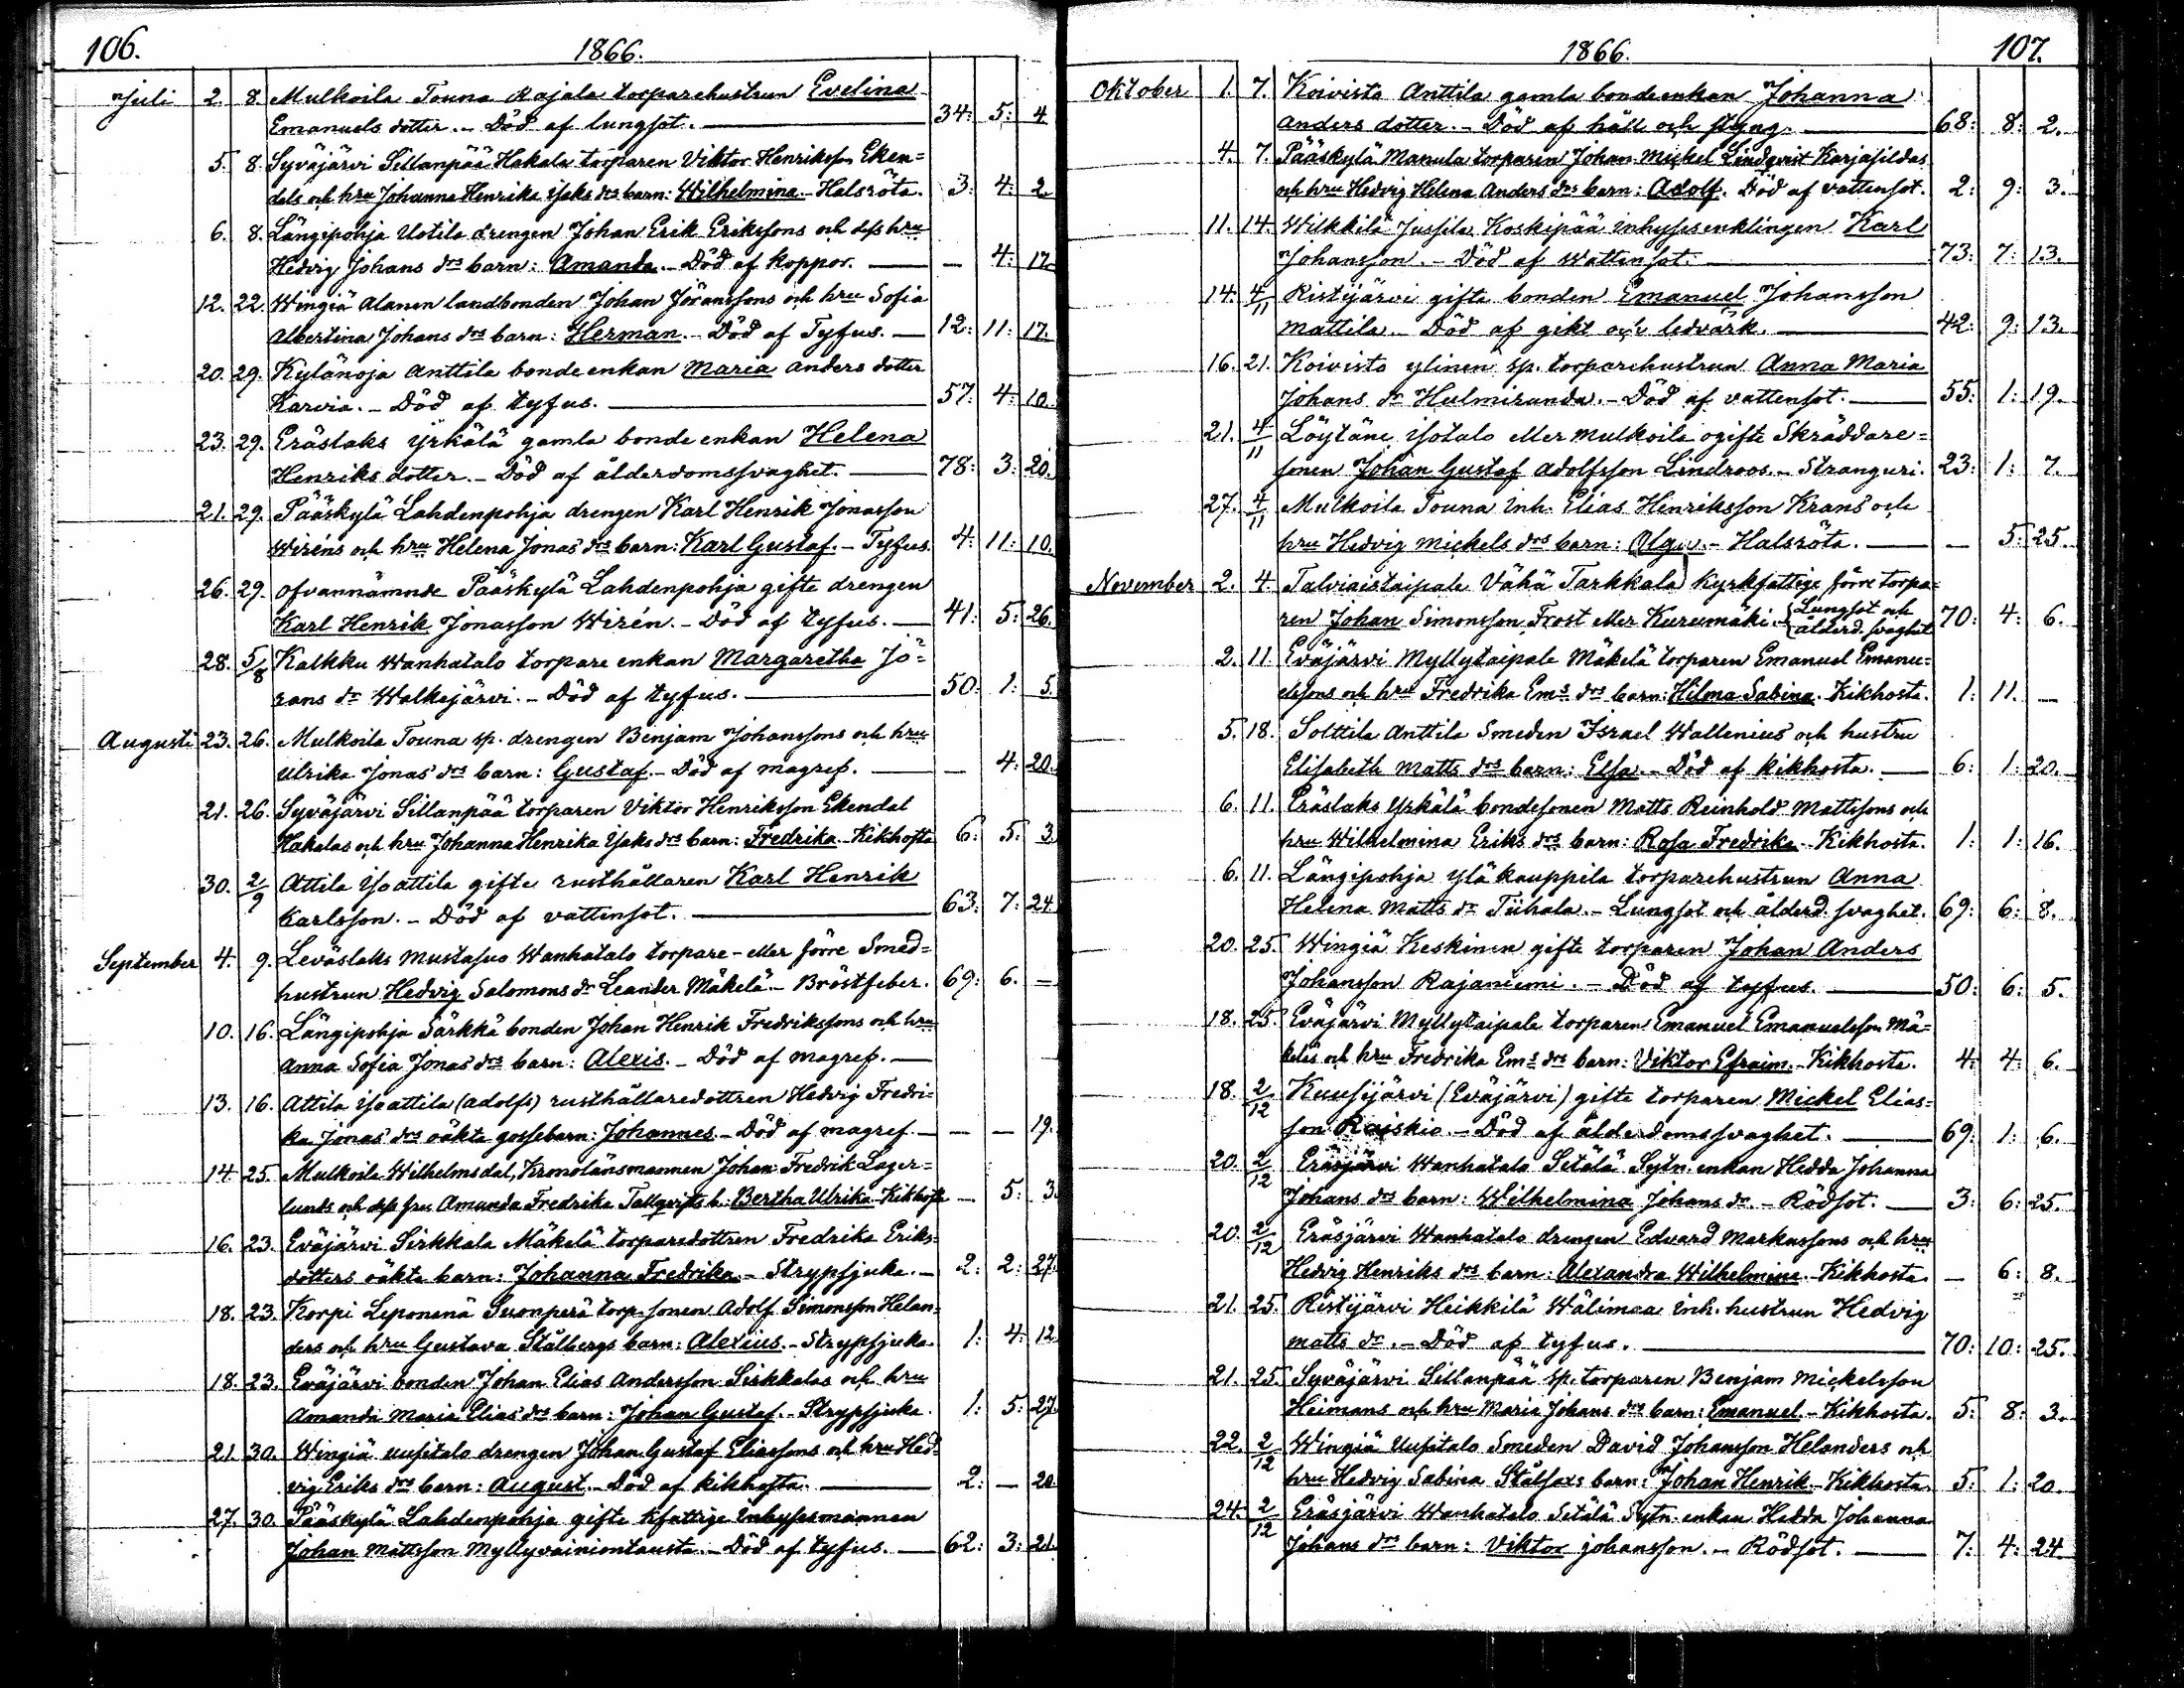 106.
1866.
Juli 2. 8. Mulkoila Touna Rajala torparehustrun Evelina
Emanuels dotter. – Död af lungsot. — 34: 5: 4
5. 8. Syväjärvi Sillanpää Hakala torparen Viktor Henriksson Eken=
dals och hru Johanna Henrika Isaks drs barn: Wilhelmina. – Halsröta. 3: 4: 2
6. 8. Längipohja Uotila drengen Johan Erik Erikssons och dess hru
Hedvig Johans drs barn: Amanda. – Död af koppor. — — 4: 17.
12. 22. Wingiä Alanen landbonden Johan Jöranssons och hru Sofia
Albertina Johans drs barn: Herman. – Död af Tyfus. — 12: 11: 17.
20. 29. Kylänoja Anttila bonde enkan Maria Anders dotter
Karvia. – Död af tyfus. — 57: 4: 10.
23. 29. Eräslaks Yrkälä gamla bonde enkan Helena
Henriks dotter. – Död af ålderdomssvaghet. — 78: 3: 20.
21. 29. Pääskylä Lahdenpohja drengen Karl Henrik Jonasson
Wiréns och hru Helena Jonas drs barn: Karl Gustaf. – Tyfus. 4: 11: 10.
26. 29. Ofvannämnde Pääskylä Lahdenpohja gifte drengen
Karl Henrik Jonasson Wirén. – Död af tyfus. — 41: 5: 26.
28. 5/8 Kalkku Wanhatalo torpare enkan Margaretha Jö=
rans dr Walkejärvi. – Död af tyfus. — 50: 1: 5.
Augusti 23. 26. Mulkoila Touna sp. drengen Benjam Johanssons och hru
Ulrika Jonas drs barn: Gustaf. – Död af magref. — — 4: 20.
21. 26. Syväjärvi Sillanpää torparen Viktor Henriksson Ekendal
Hakalas och hru Johanna Henrika Isaks drs barn: Fredrika. – Kikhosta 6: 5: 3.
30. 2/9 Attila Isoattila gifte rusthållaren Karl Henrik
Karlsson. – Död af vattensot. — 63: 7: 24
September 4. 9. Leväslaks Mustasuo Wanhatalo torpare- eller förre Smed=
hustrun Hedvig Salomons dr Leander Mäkelä. – Bröstfeber. 69: 6. –
10. 16. Längipohja Särkkä bonden Johan Henrik Fredrikssons och hru
Anna Sofia Jonas drs barn: Alexis. – Död af magref. —
13. 16. Attila Isoattila (Adolfs) rusthållaredottren Hedvig Fredri=
ka Jonas drs oäkta gossebarn: Johannes. – Död af magref. — — — 19.
14. 25. Mulkoila Wilhelmsdal, Kronolänsmannen Johan Fredrik Lager=
lunds och dess fru Amanda Fredrika Tallqvists b.: Bertha Ulrika. – Kikhosta — 5: 3.
16. 23. Eväjärvi Sirkkala Mäkelä torparedottren Fredrika Eriks=
dotters oäkta barn: Johanna Fredrika. – Strypsjuka. – 2: 2: 27.
18. 23. Korpi Leponenä Suonperä torp. sonen Adolf Simonsson Helan=
ders och hru Gustava Stålbergs barn: Alexius. – Strypsjuka. 1: 4: 12.
18. 23. Eväjärvi bonden Johan Elias Andersson Sirkkalas och hru
Amanda Maria Elias drs barn: Johan Gustaf. – Strypsjuka. 1: 5: 27.
21. 30. Wingiä Uusitalo drengen Johan Gustaf Eliassons och hru Hed=
vig Eriks drs barn: August. – Död af kikhosta. — 2: — 20.
27. 30. Pääskylä Lahdenpohja gifte kfattige Inhysesmannen
Johan Mattsson Myllyvainiontausta. – Död af tyfus. — 62: 3: 21.
1866.
107.
Oktober 1. 7. Koivisto Anttila gamla bondeenkan Johanna
Anders dotter. – Död af håll och styng. — 68: 8: 2.
4. 7. Pääskylä Manula torparen Johan Mickel Lindqvist Karjasildas
och hru Hedvig Helena Anders drs barn: Adolf. Död af vattensot. 2: 9: 3.
11. 14. Wilkkilä Jussila Koskipää inhysesenklingen Karl
Johansson. – Död af Wattensot. — 73: 7: 13.
14. 4/11 Ristijärvi gifte bonden Emanuel Johansson
Mattila. – Död af gikt och ledvärk. — 42: 9: 13.
16. 21. Koivisto Ylinen sp. torparehustrun Anna Maria
Johans dr Hulmiranda. – Död af vattensot. — 55: 1: 19.
21. 4/11 Löytäne Isotalo eller Mulkoila ogifte Skräddare=
sonen Johan Gustaf Adolfsson Lindroos. – Stranguri. 23: 1: 7.
27. 4/11 Mulkoila Touna Inh. Elias Henriksson Krans och
hru Hedvig Mickels drs barn: Olga. – Halsröta. — — 5: 25.
November 2. 4. Talviaistaipale Vähä Tarkkala Kyrkfattige förre torpa=
ren Johan Simonsson Frost eller Kurumäki. – {Lungsot och ålderd. svaghet 70: 4: 6.
2. 11. Eväjärvi Myllytaipale Mäkelä torparen Emanuel Emanu=
elssons och hru Fredrika Ems drs barn: Hilma Sabina. – Kikhosta. 1: 11. —
5. 18. Solttila Anttila Smeden Israel Wallenius och hustru
Elisabeth Matts drs barn: Elsa. – Död af kikhosta. — 6: 1: 20.
6. 11. Eräslaks Yrkälä bondesonen Matts Reinhold Mattssons och
hru Wilhelmina Eriks drs barn: Rosa Fredrika. – Kikhosta. 1: 1: 16.
6. 11. Längipohja Yläkauppila torparehustrun Anna
Helena Matts dr Tiihala. – Lungsot och ålderd. svaghet. 69: 6: 8.
20. 25. Wingiä Keskinen gifte torparen Johan Anders
Johansson Rajaniemi. – Död af tyfus. — 50: 6: 5.
18. 25. Eväjärvi Myllytaipale torparen Emanuel Emanuelsson Mä=
keläs och hru Fredrika Ems drs barn: Viktor Efraim. – Kikhosta. 4: 4: 6.
18. 2/12 Kuusijärvi (Eväjärvi) gifte torparen Mickel Elias=
son Raiskio. – Död af ålderdomssvaghet. — 69: 1: 6.
20. 2/12 Eräsjärvi Wanhatalo Setälä Sytn. enkan Hedda Johanna
Johans drs barn: Wilhelmina Johans dr. – Rödsot. — 3: 6: 25.
20. 2/12 Eräsjärvi Wanhatalo drengen Edvard Markussons och hru
Hedvig Henriks drs barn: Alexandra Wilhelmina. – Kikhosta. — 6: 8.
21. 25. Ristijärvi Heikkilä Wälimaa Inh. hustrun Hedvig
Matts dr. – Död af tyfus. — 70: 10: 25.
21. 25. Syväjärvi Sillanpää sp. torparen Benjam Mickelsson
Heimans och hru Maria Johans drs barn: Emanuel. – Kikhosta. 5: 8: 3.
22. 2/12 Wingiä Uusitalo Smeden David Johansson Helanders och
hru Hedvig Sabina Stålsaxs barn: Johan Henrik. – Kikhosta. 5: 1: 20.
24. 2/12 Eräsjärvi Wanhatalo Setälä Sytn. enkan Hedda Johanna
Johans drs barn: Viktor Johansson. – Rödsot. — 7: 4: 24